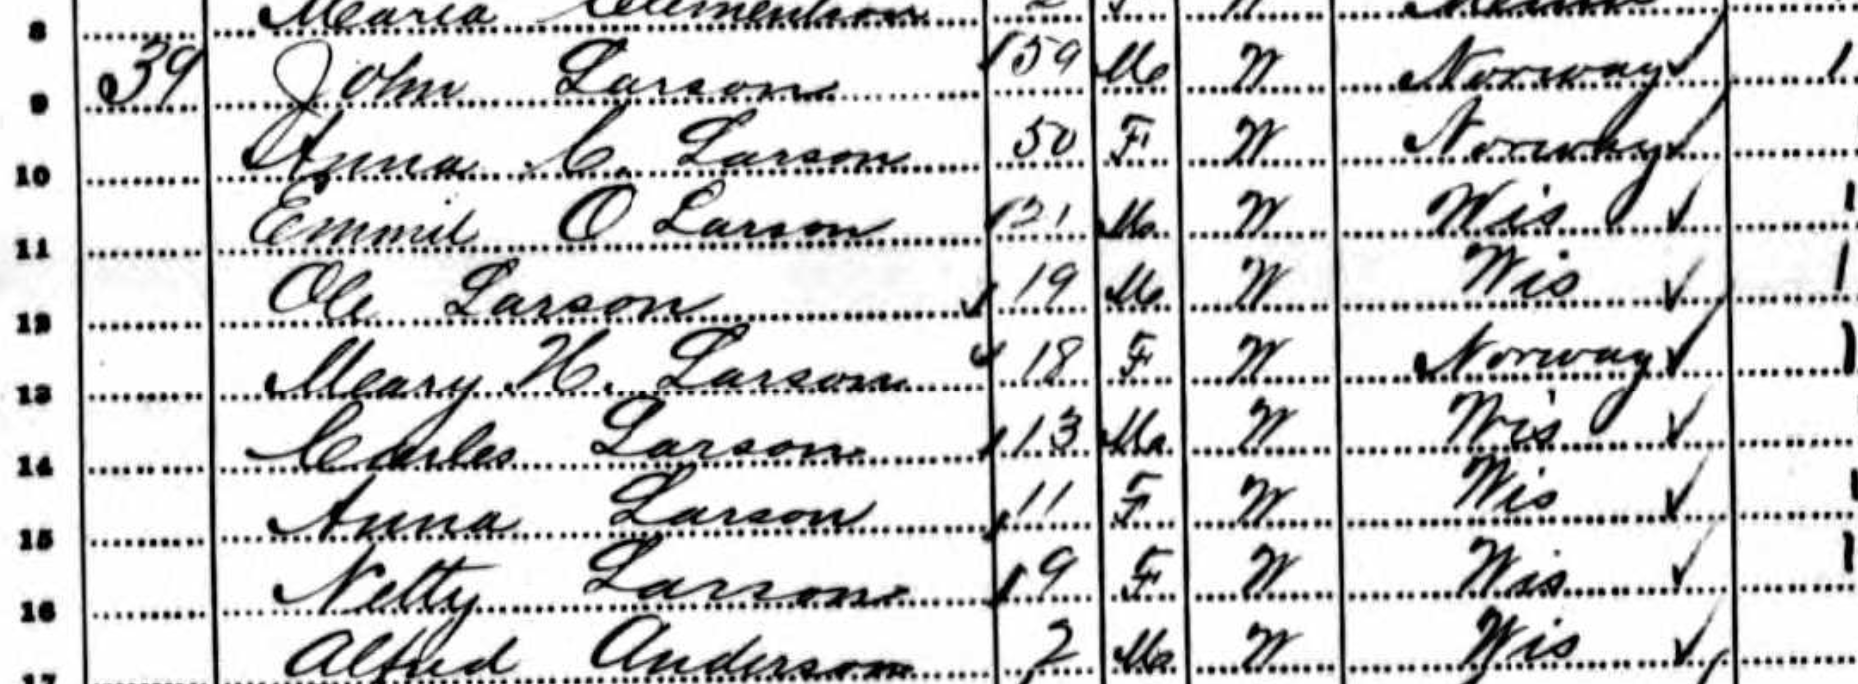 8 Maria Clementson 2 F W
9 39 John Larson 59 M W Norway 1
10 Anna C. Larson 50 F W Norway 1
11 Emmil O Larson 21 M W Wis 1
12 Ole Larson 19 M W Wis 1
13 Mary H. Larson 18 F W Norway 1
14 Carles Larson 13 M W Wis
15 Anna Larson 11 F W Wis 1
16 Netty Larson 9 F W Wis 1
17 Alfred Anderson 2 M W Wis